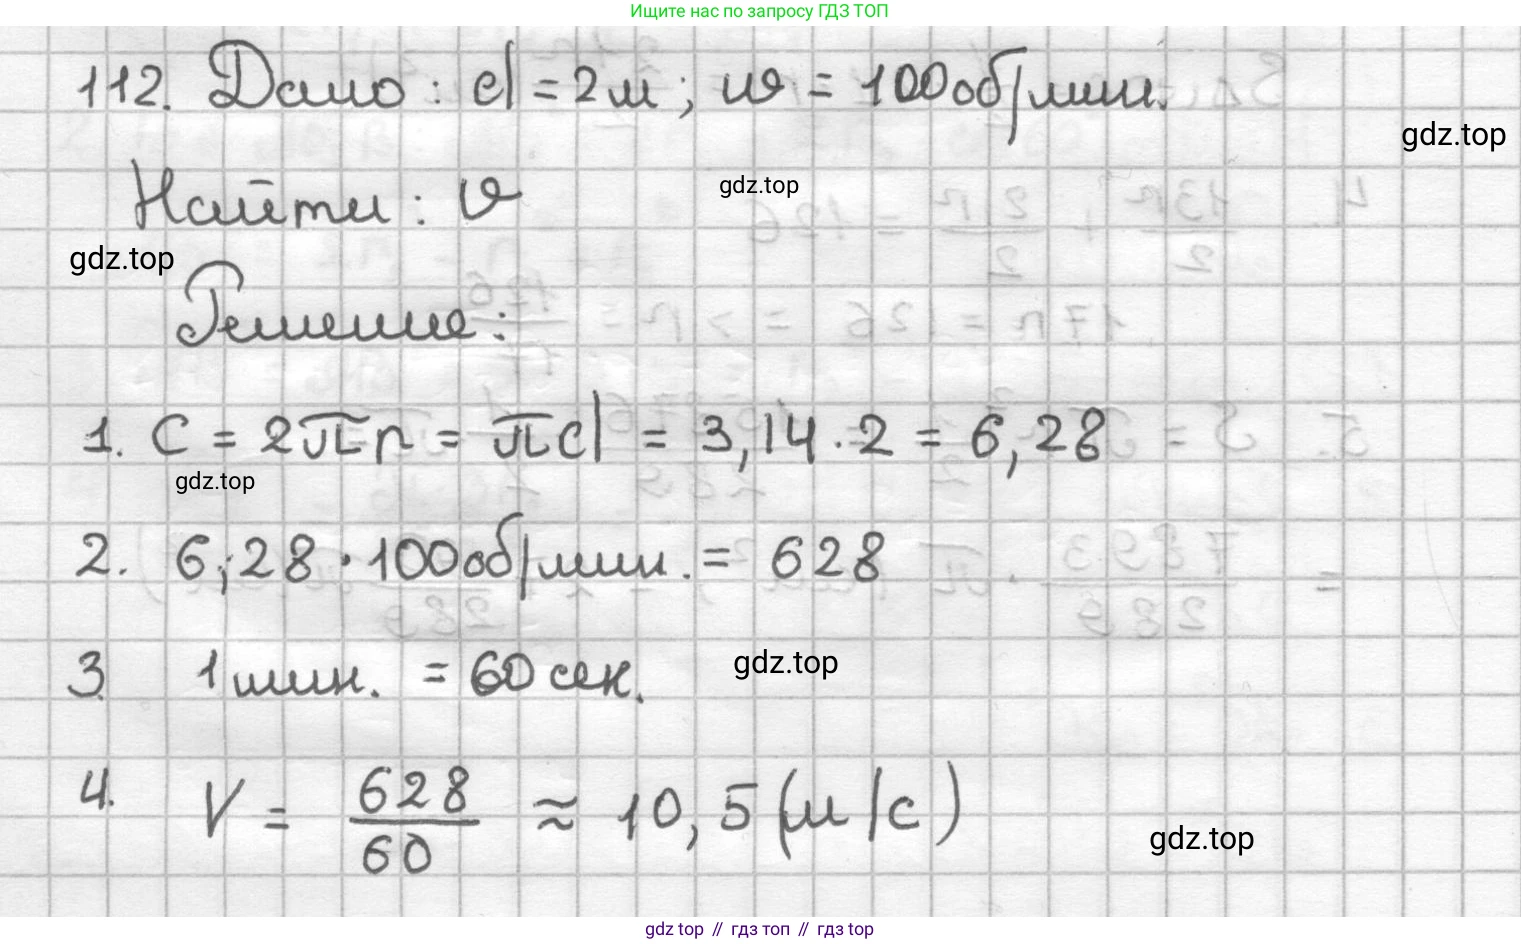 Ищите нас по запросу ГДЗ ТОП
112. Дано: d = 2 м; ω = 100 об/мин.
gdz.top
Найти: υ
gdz.top
gdz.top
Решение:
1. C = 2πr = πd = 3,14 · 2 = 6,28
gdz.top
2. 6,28 · 100 об/мин. = 628
3. 1 мин. = 60 сек.
gdz.top
4. V = 628/60 ≈ 10,5 (м/с)
gdz.top
gdz top // гдз топ // гдз top